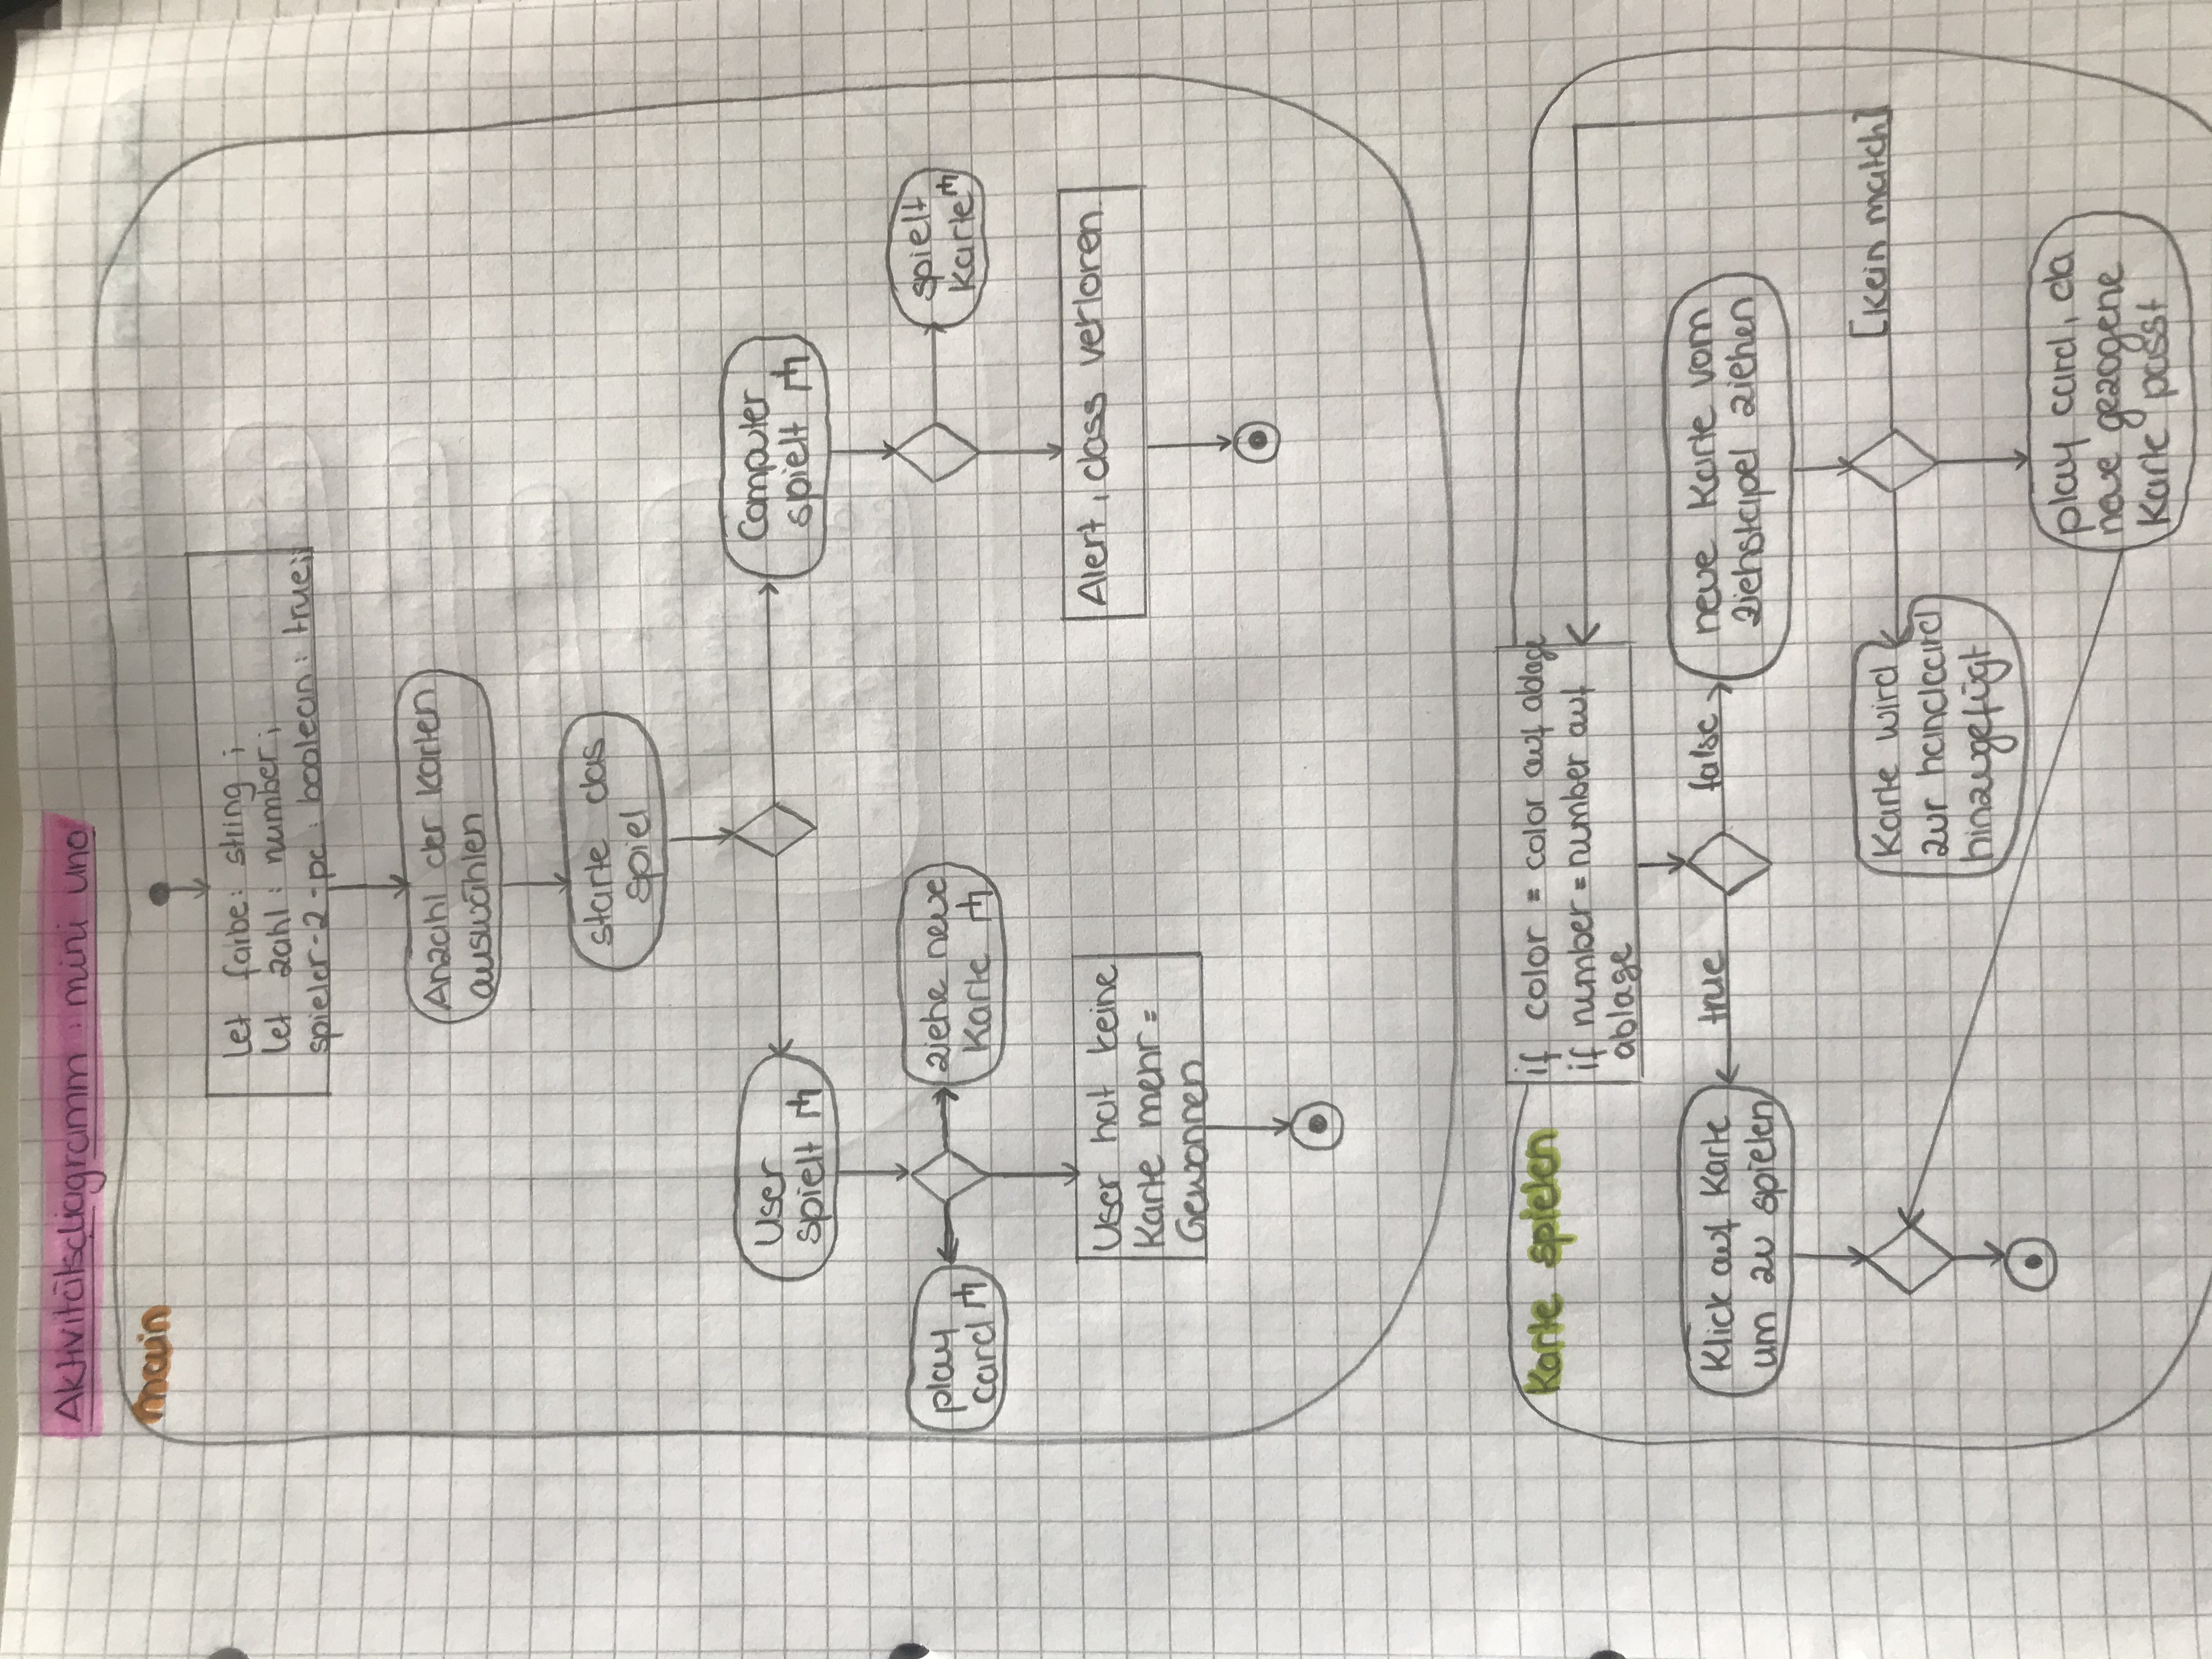 Aktivitätsdiagramm: mini uno
main
let farbe: string;
let zahl: number;
spieler-2-pc: boolean: true;
Anzahl der Karten
auswählen
starte das
spiel
User
spielt
Computer
spielt
play
card
ziehe neue
Karte
spielt
Karte
User hat keine
Karte mehr =
Gewonnen
Alert, dass verloren
Karte spielen
if color = color auf ablage
if number = number auf
ablage
Klick auf Karte
um zu spielen
true
false
neue Karte vom
ziehstapel ziehen
Karte wird
zur handcard
hinzugefügt
[Kein match]
play card, da
neue gezogene
Karte passt